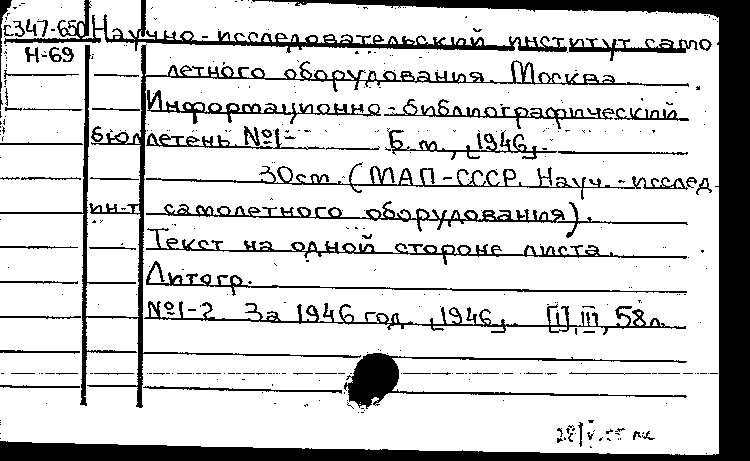 с347-650 Научно-исследовательский институт само-
Н-69
летного оборудования. Москва
Информационно-библиографический
бюллетень. №1- Б.м., [1946].
30см. (МАП-СССР. Науч.-исслед.
ин-т самолетного оборудования).
Текст на одной стороне листа.
Литогр.
№1-2. За 1946 год. [1946]. [I], III, 58л.
28/V.55